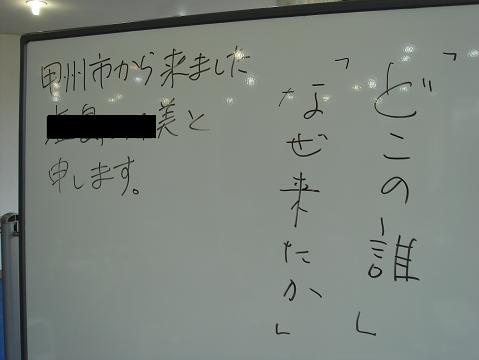 「どこの誰」
「なぜ来たか」
甲州市から来ました
美と
申します。